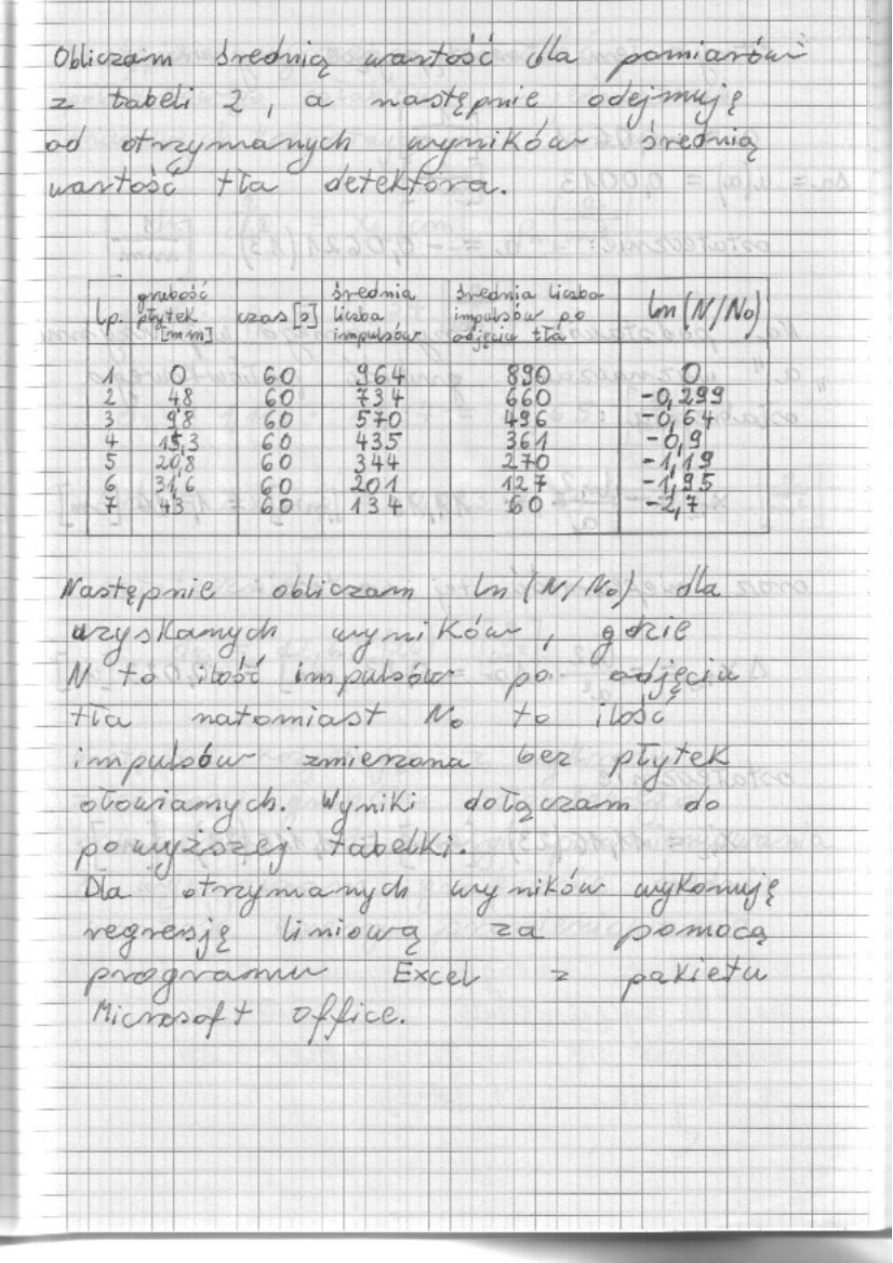 Obliczam średnią wartość dla pomiarów
z tabeli 2, a następnie odejmuję
od otrzymanych wyników średnią
wartość tła detektora.
lp. | grubość płytek [mm] | czas [s] | średnia liczba impulsów | średnia liczba impulsów po odjęciu tła | ln(N/No)
1 | 0 | 60 | 964 | 890 | 0
2 | 4,8 | 60 | 734 | 660 | -0,299
3 | 9,8 | 60 | 570 | 496 | -0,64
4 | 15,3 | 60 | 435 | 361 | -0,9
5 | 20,8 | 60 | 344 | 270 | -1,19
6 | 31,6 | 60 | 201 | 127 | -1,95
7 | 43 | 60 | 134 | 60 | -2,7
Następnie obliczam ln(N/No) dla
uzyskanych wyników, gdzie
N to ilość impulsów po odjęciu
tła natomiast No to ilość
impulsów zmierzona bez płytek
ołowianych. Wyniki dołączam do
powyższej tabelki.
Dla otrzymanych wyników wykonuję
regresję liniową za pomocą
programu Excel z pakietu
Microsoft Office.